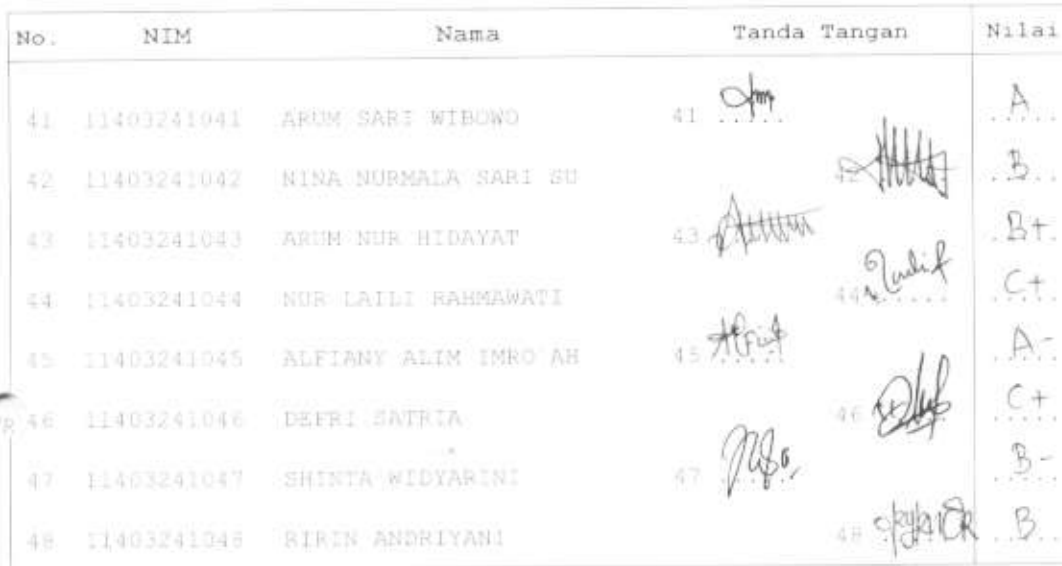 No. NIM Nama Tanda Tangan Nilai
41 11403241041 ARUM SARI WIBOWO 41 ..... A
42 11403241042 NINA NURMALA SARI SU 42 B
43 11403241043 ARUM NUR HIDAYAT 43 B+
44 11403241044 NUR LAILI RAHMAWATI 44 ..... C+
45 11403241045 ALFIANY ALIM IMRO AH 45 ..... A-
46 11403241046 DEFRI SATRIA 46 C+
47 11403241047 SHINTA WIDYARINI 47 ..... B-
48 11403241048 RIRIN ANDRIYANI 48 B